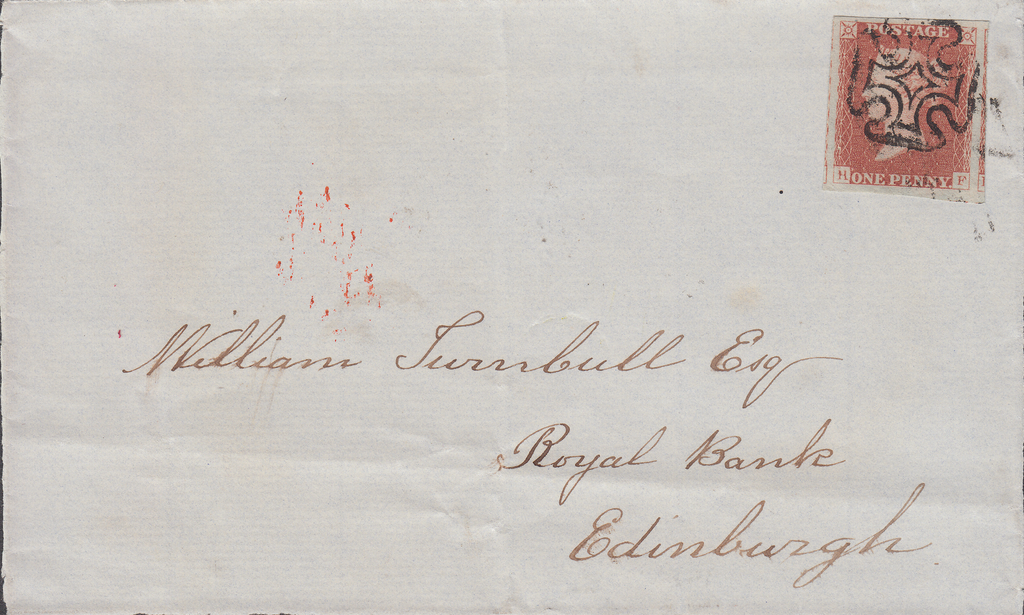 POSTAGE
H ONE PENNY F
William Turnbull Esq
Royal Bank
Edinburgh